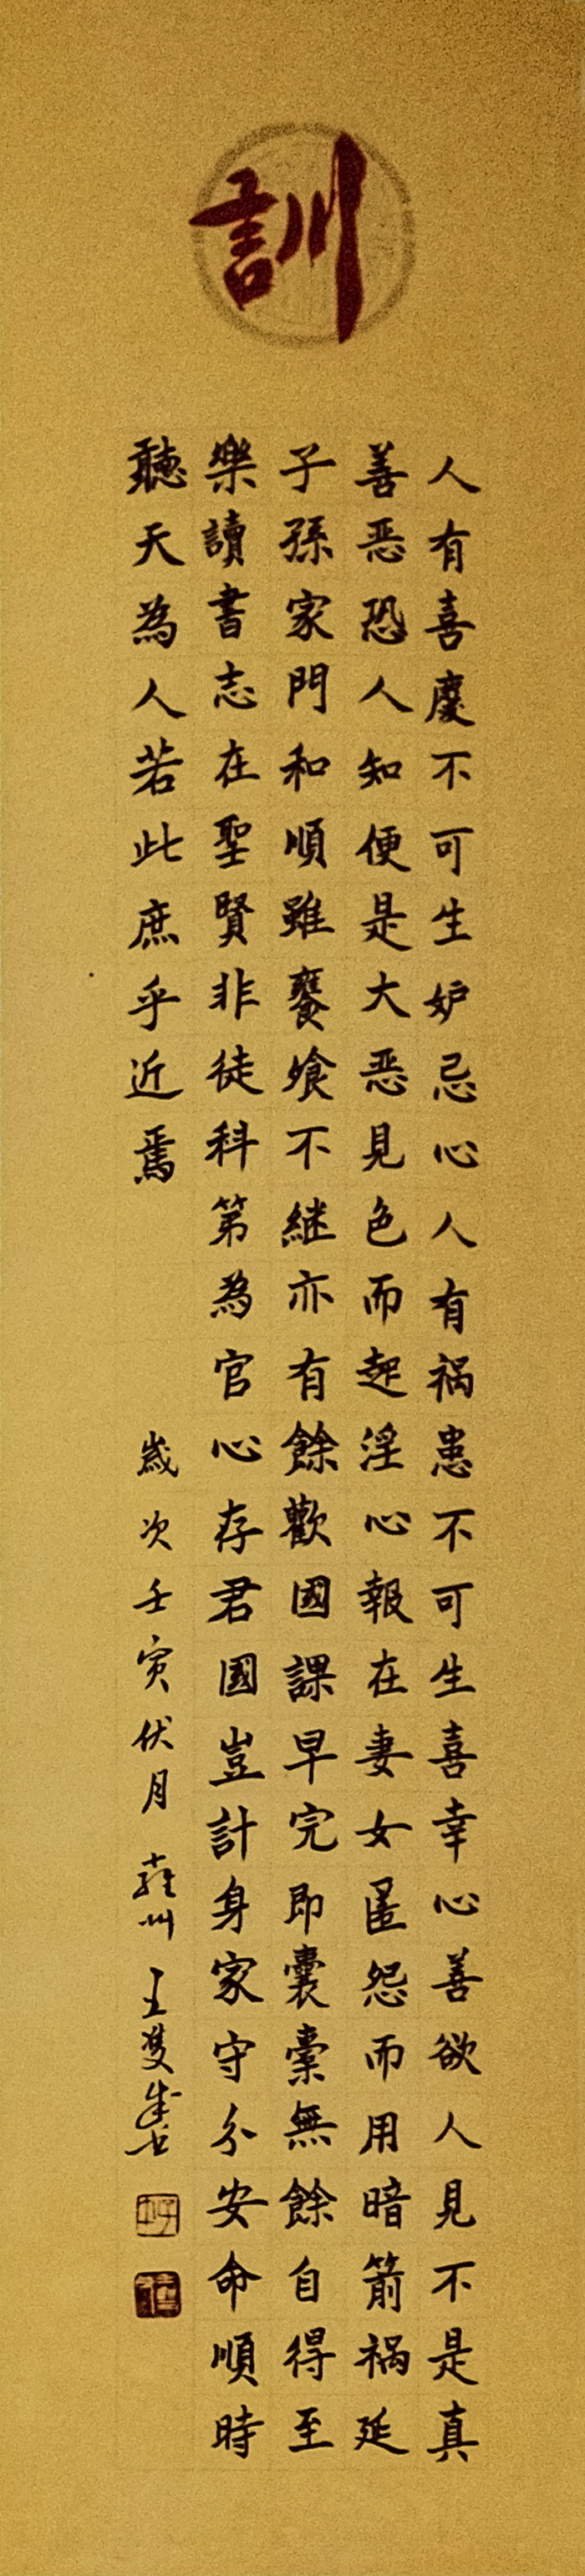 訓
人有喜慶不可生妒忌心人有祸患不可生喜幸心善欲人見不是真
善恶恐人知便是大恶見色而起淫心報在妻女匿怨而用暗箭祸延
子孫家門和順雖饔飧不継亦有餘歡國課早完即囊橐無餘自得至
樂讀書志在聖賢非徒科第為官心存君國豈計身家守分安命順時
聽天為人若此庶乎近焉
歲次壬寅伏月雍州王雙成书